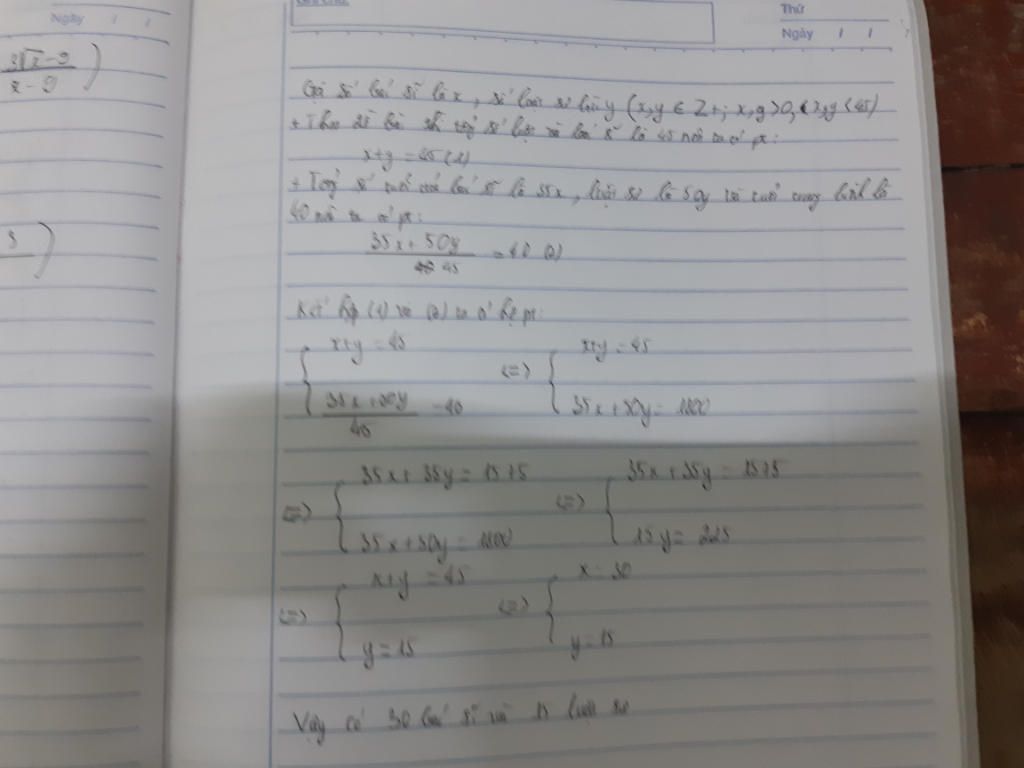 Ngày / /
3√x - 9
x - 9
3
Ghi chú:
Thứ
Ngày / /
Gọi số bác sĩ là x, số luật sư là y (x,y ∈ Z+; x,y>0, x,y<45)
+ Theo đề bài thì tổng số luật sư và bác sĩ là 45 nên ta có pt:
x+y = 45 (1)
+ Tổng số tuổi của bác sĩ là 35x, luật sư là 50y và tuổi trung bình là
40 nên ta có pt:
35x + 50y
45
= 40 (2)
Kết hợp (1) và (2) ta có hệ pt:
x+y = 45 (=) x+y = 45
35x + 50y = 40 35x + 50y = 1800
45
(=) 35x + 35y = 1575 (=) 35x + 35y = 1575
35x + 50y = 1800 15y = 225
(=) x+y = 45 (=) x = 30
y = 15 y = 15
Vậy có 30 bác sĩ và 15 luật sư